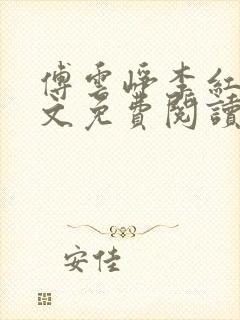 傅雲崢李紅
文免費閱讀
安佳